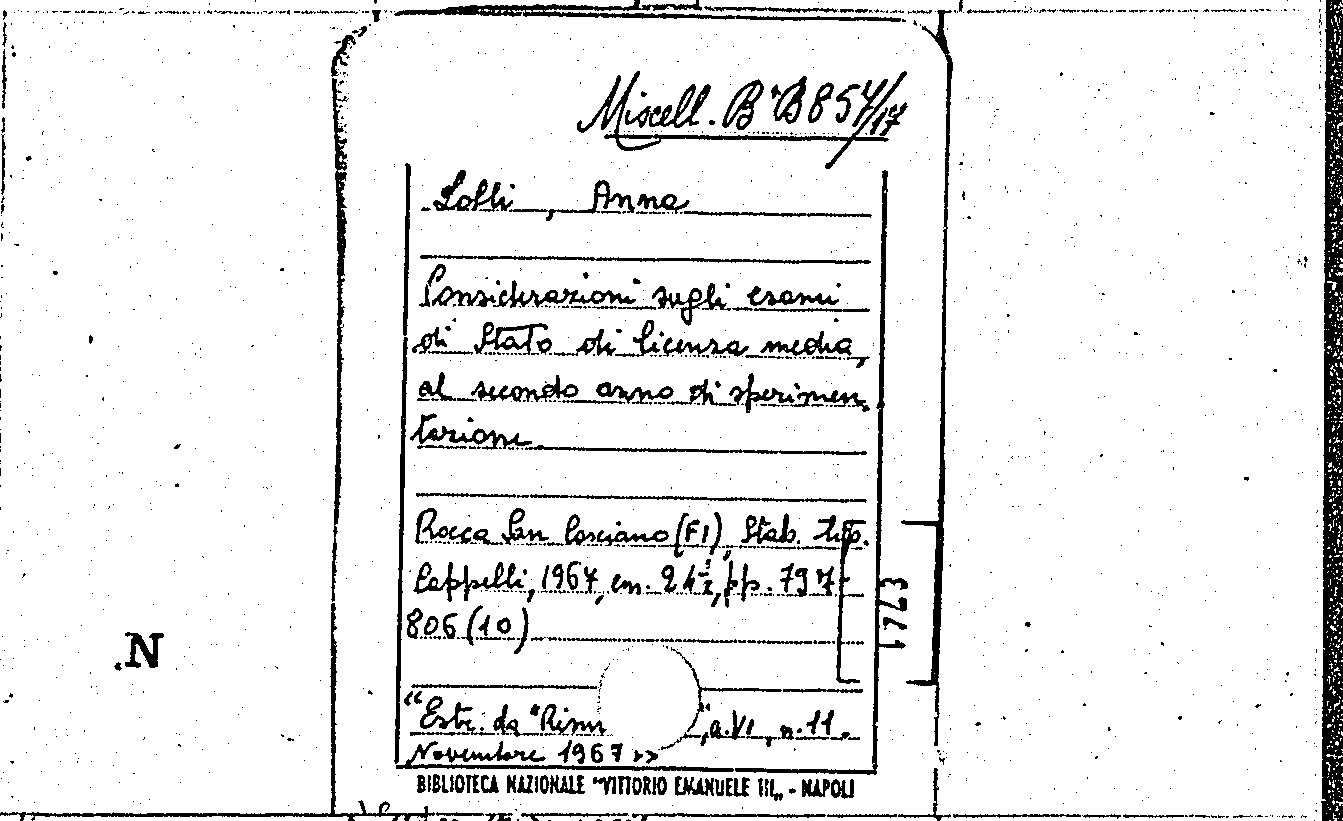 Miscell. B. B 857/17
Lolli, Anna
Considerazioni sugli esami
di Stato di licenza media,
al secondo anno di sperimen-
tazione.
Rocca San Casciano (FI), Stab. tip.
Cappelli, 1967, cm. 24½, pp. 797-
806 (10)
1763
"Estr. da "
", a. VI, n. 11.
Novembre 1967 »
BIBLIOTECA NAZIONALE "VITTORIO EMANUELE III„ - NAPOLI
N.